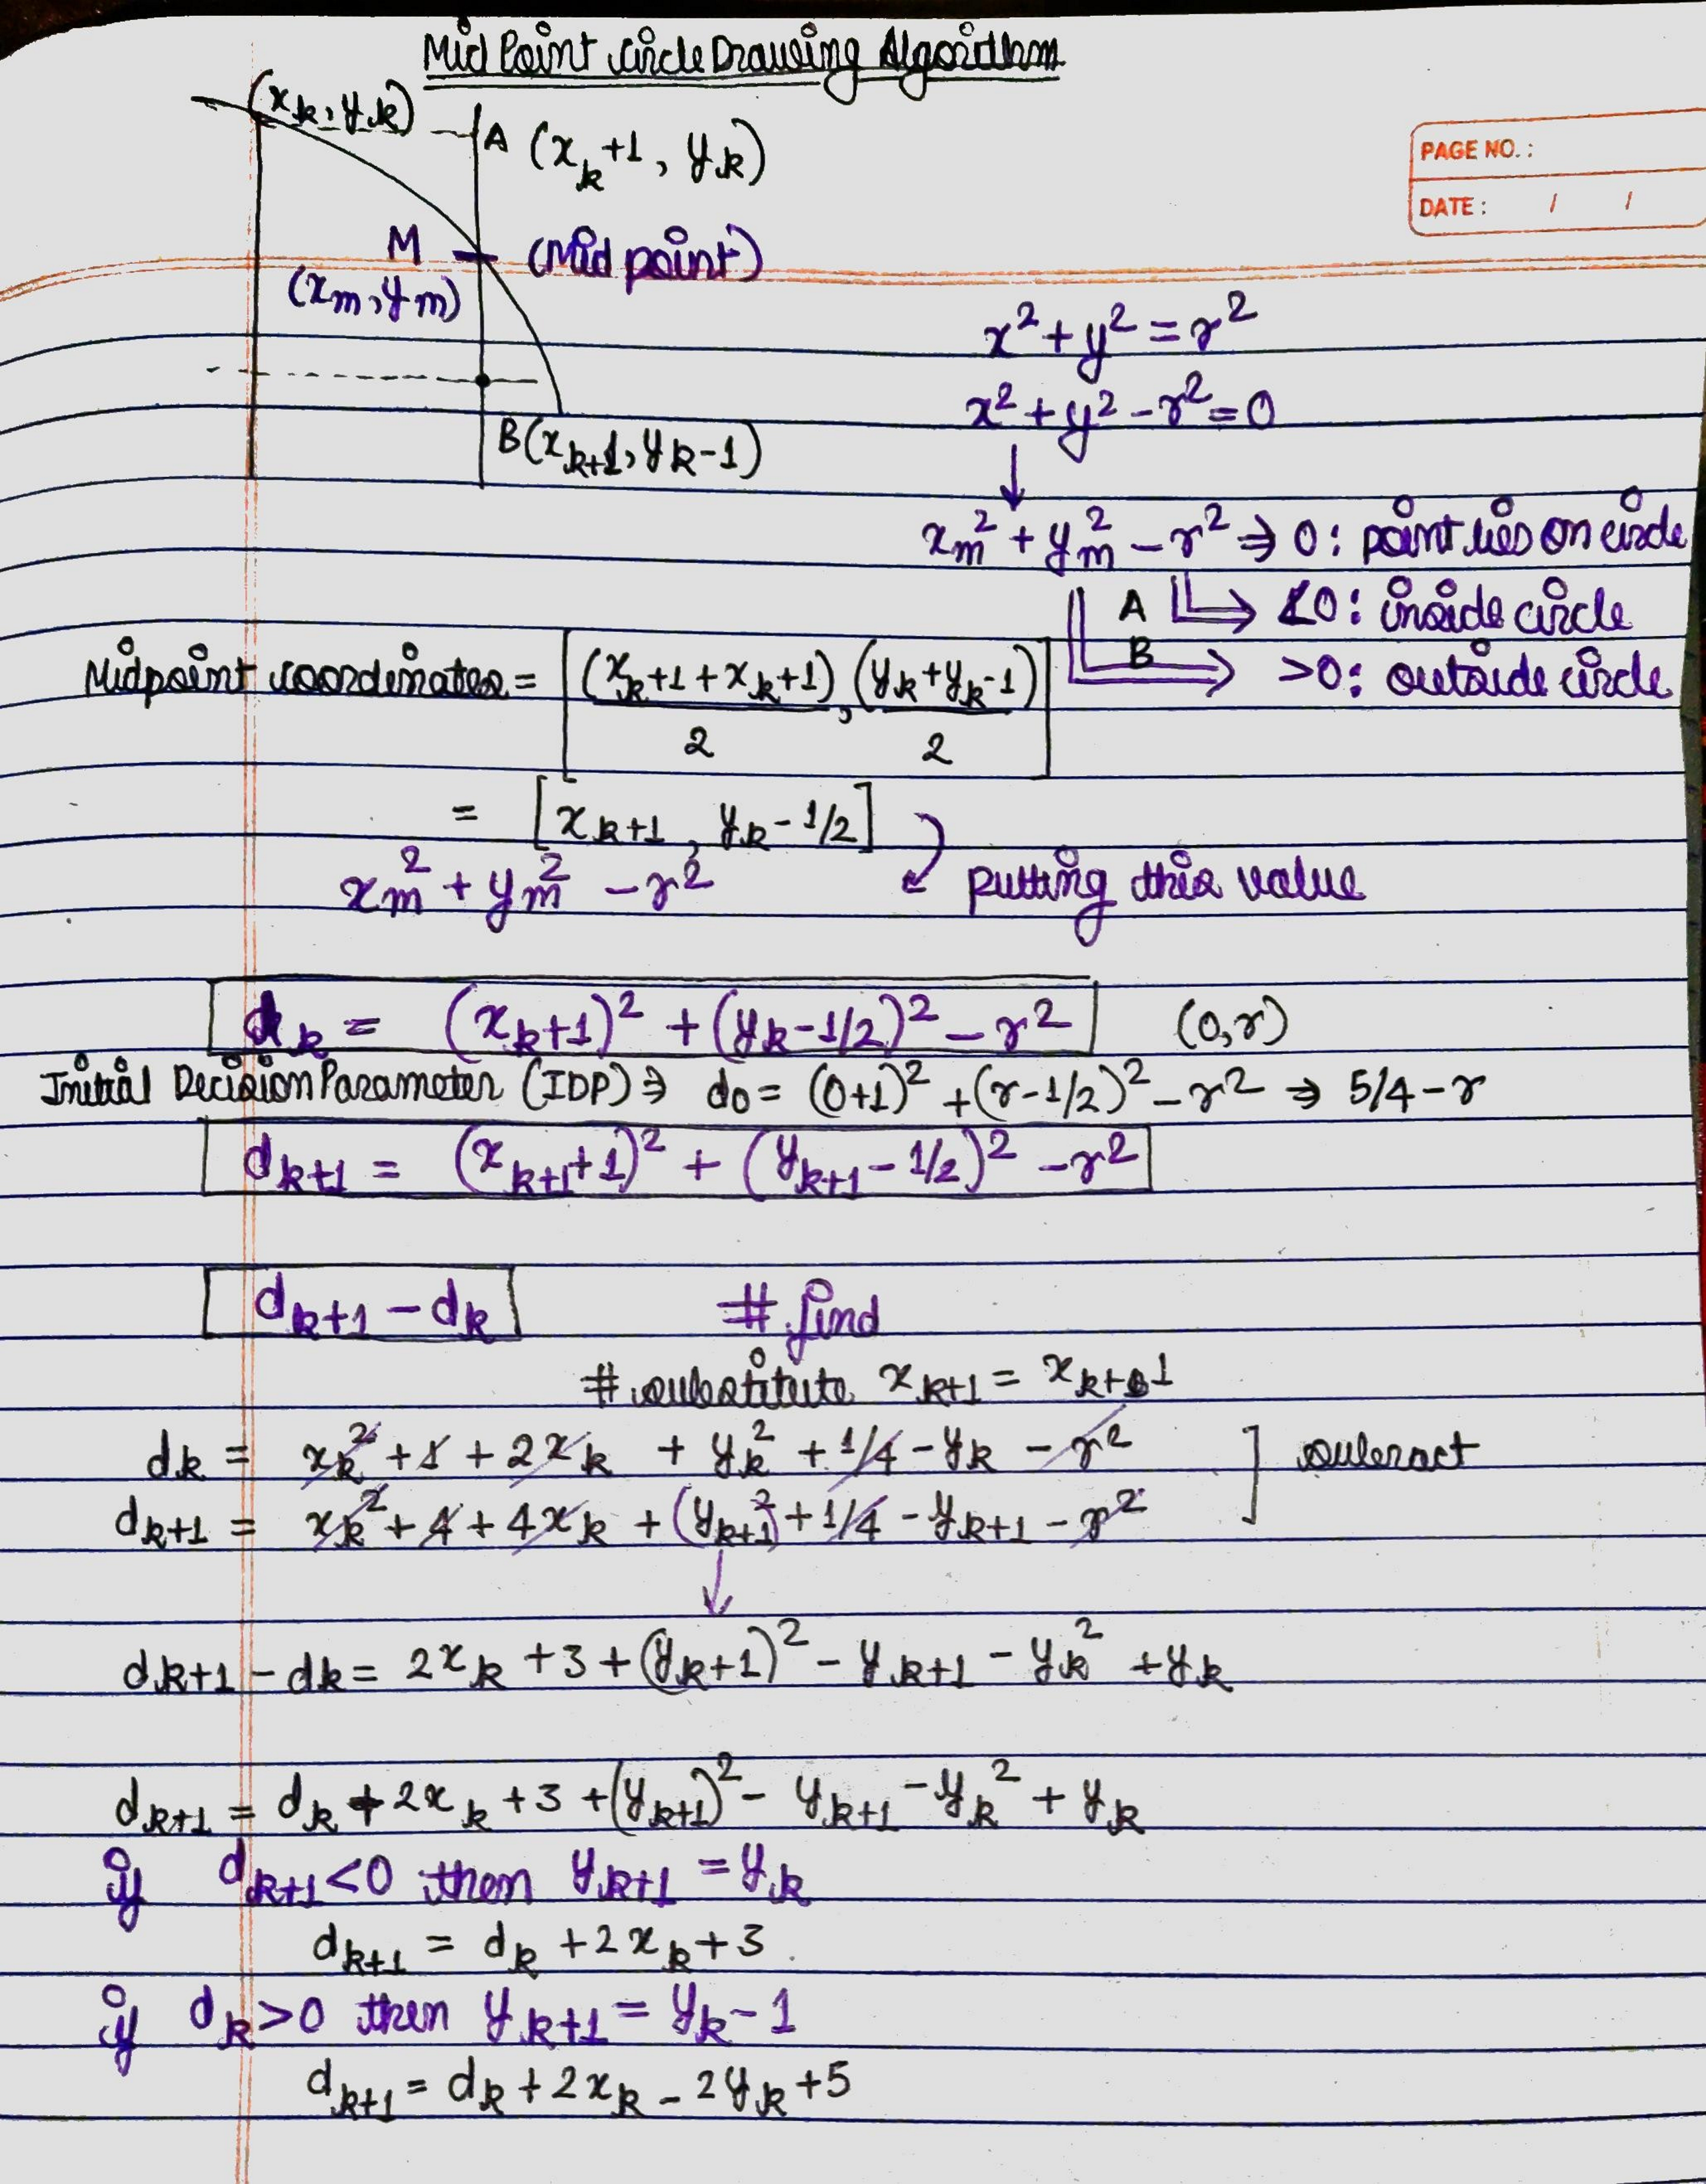 Mid Point Circle Drawing Algorithm
(x_k, y_k) A (x_k+1, y_k)
PAGE NO.:
DATE: / /
M (Mid point)
(x_m, y_m)
x² + y² = r²
x² + y² - r² = 0
B(x_{k+1}, y_k-1)
↓
x_m² + y_m² - r² ⇒ 0 : point lies on circle
A → <0 : inside circle
B → >0 : outside circle
Midpoint coordinates = [(x_k+1 + x_k+1)/2, (y_k + y_k-1)/2]
= [x_{k+1}, y_k - 1/2]
x_m² + y_m² - r² putting this value
d_k = (x_k+1)² + (y_k-1/2)² - r² (0,r)
Initial Decision Parameter (IDP) ⇒ d0 = (0+1)² + (r-1/2)² - r² ⇒ 5/4 - r
d_{k+1} = (x_{k+1}+1)² + (y_{k+1} - 1/2)² - r²
d_{k+1} - d_k # find
# substitute x_{k+1} = x_k+1
d_k = x_k² + 1 + 2x_k + y_k² + 1/4 - y_k - r² ] subtract
d_{k+1} = x_k² + 4 + 4x_k + (y_{k+1})² + 1/4 - y_{k+1} - r²
↓
d_{k+1} - d_k = 2x_k + 3 + (y_{k+1})² - y_{k+1} - y_k² + y_k
d_{k+1} = d_k + 2x_k + 3 + (y_{k+1})² - y_{k+1} - y_k² + y_k
if d_{k+1} < 0 then y_{k+1} = y_k
d_{k+1} = d_k + 2x_k + 3
if d_k > 0 then y_{k+1} = y_k - 1
d_{k+1} = d_k + 2x_k - 2y_k + 5